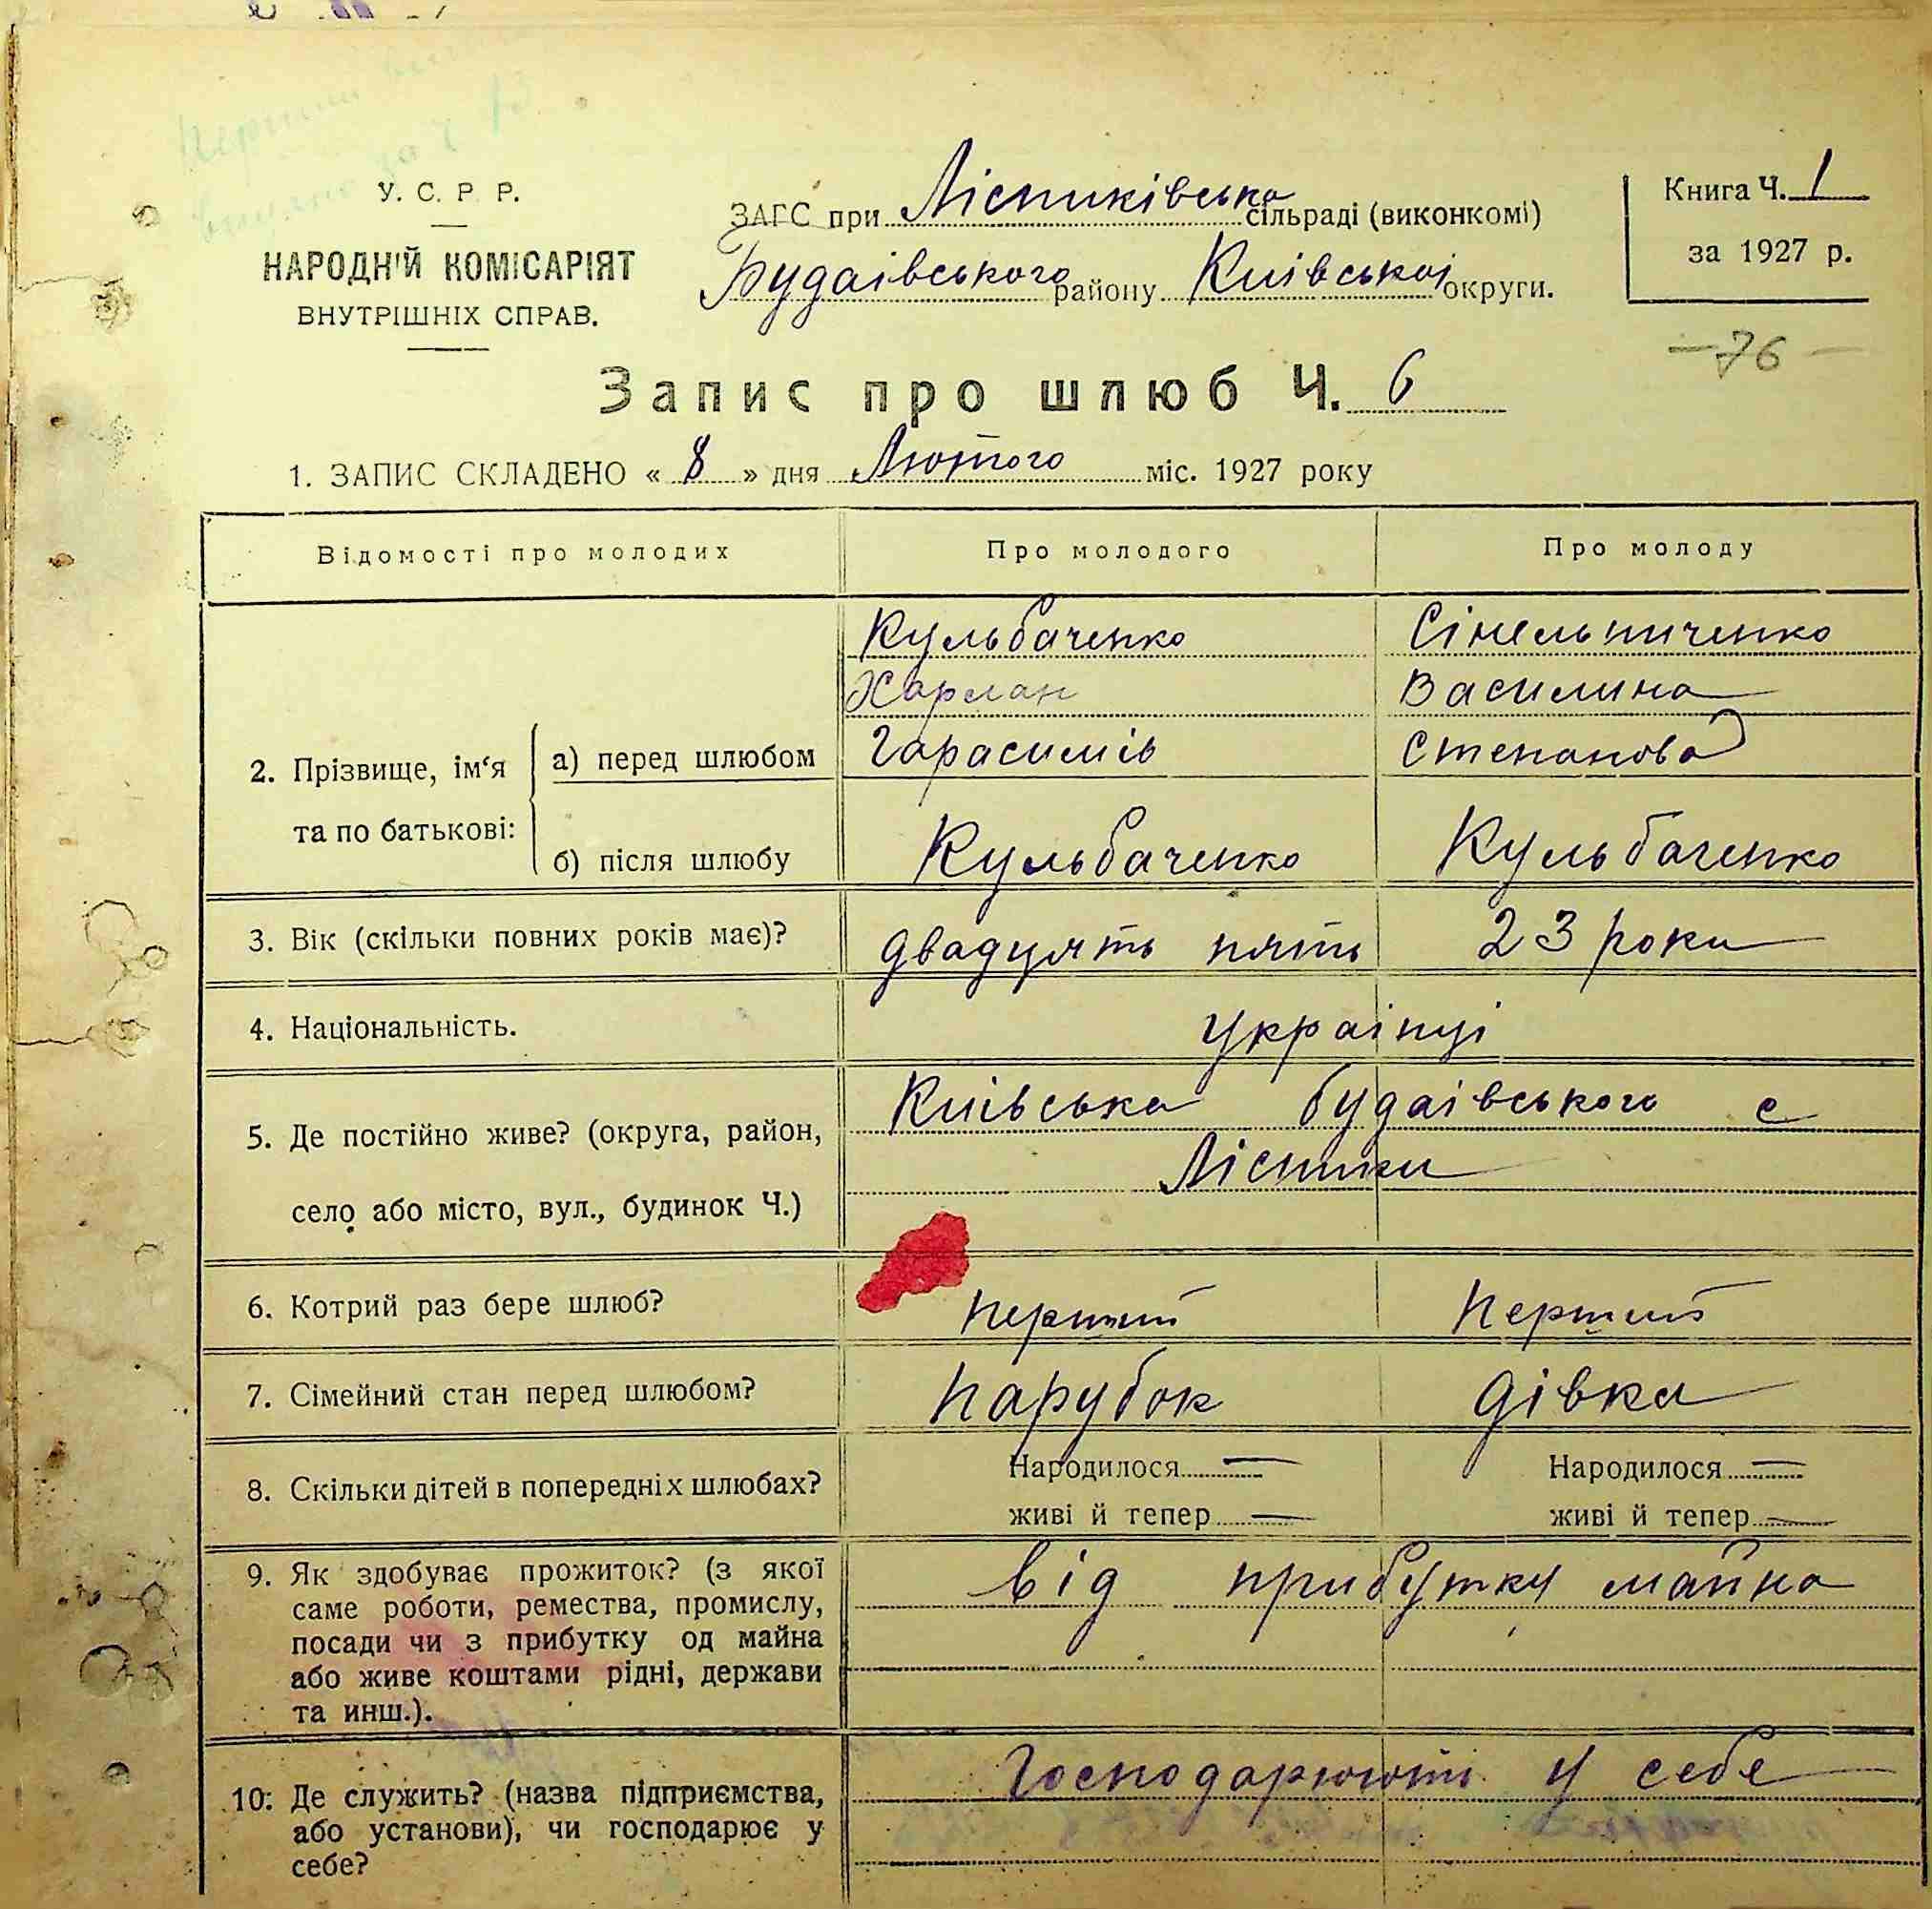 У. С. Р. Р.
НАРОДНІЙ КОМІСАРІЯТ
ВНУТРІШНІХ СПРАВ.
ЗАГС при Лісниківська сільраді (виконкомі)
Будаівського району Киівськоі округи.
Книга Ч. 1
за 1927 р.
— 76 —
Запис про шлюб Ч. 6
1. ЗАПИС СКЛАДЕНО « 8 » дня Лютого міс. 1927 року
Відомості про молодих
Про молодого
Про молоду
2. Прізвище, ім‘я
та по батькові:
а) перед шлюбом
Кульбаченко
Харлан
Гарасимів
Сінельниченко
Василина
Степанова
б) після шлюбу
Кульбаченко
Кульбаченко
3. Вік (скільки повних років має)?
двадцять пять
23 роки
4. Національність.
Украінці
5. Де постійно живе? (округа, район,
село або місто, вул., будинок Ч.)
Киівська будаівського с
Лісники
6. Котрий раз бере шлюб?
Перший
Перший
7. Сімейний стан перед шлюбом?
Парубок
дівка
8. Скільки дітей в попередніх шлюбах?
Народилося —
живі й тепер —
Народилося —
живі й тепер —
9. Як здобуває прожиток? (з якої
саме роботи, ремества, промислу,
посади чи з прибутку од майна
або живе коштами рідні, держави
та инш.).
від прибутку майна
10. Де служить? (назва підприємства,
або установи), чи господарює у
себе?
Господарюють у себе